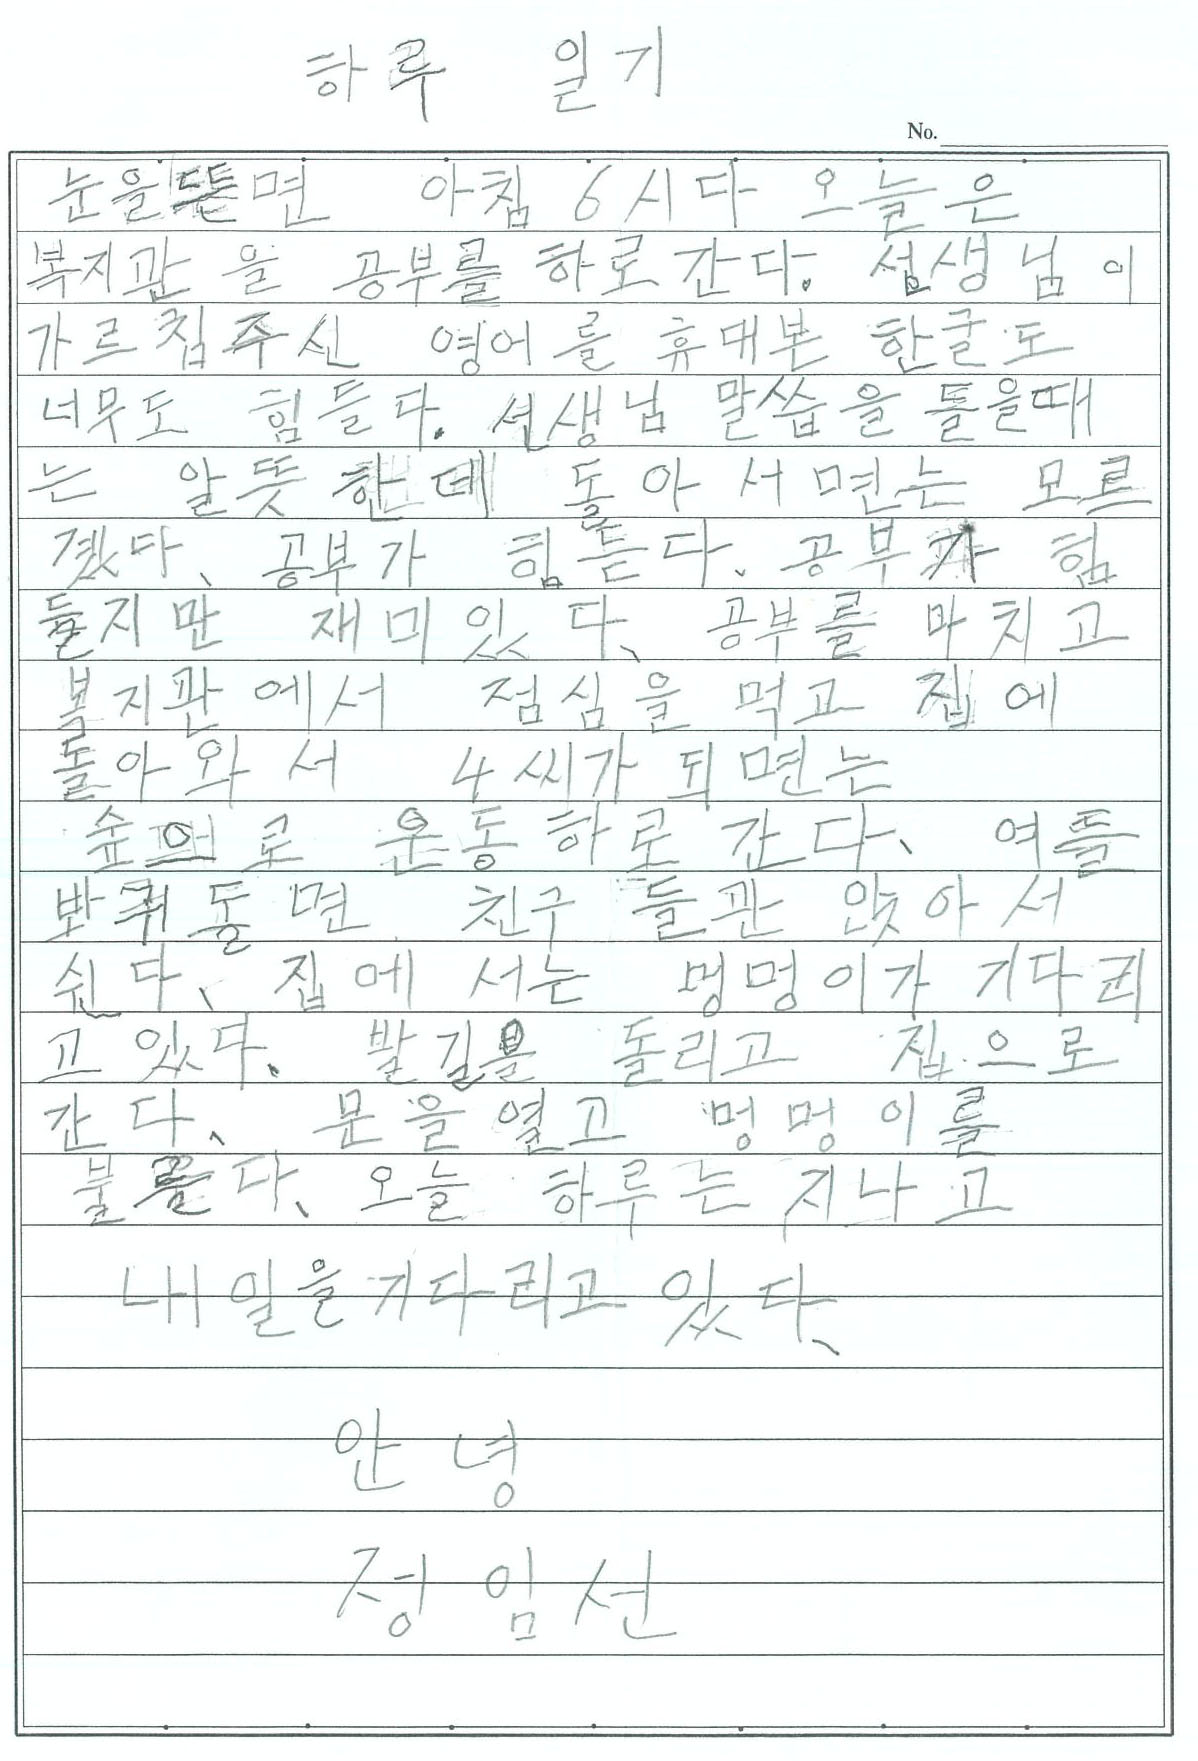 하루 일기
No.
눈을 뜯면 아침 6시다 오늘은
복지관 을 공부를 하로 간다. 섬생님이
가르칩주신 영어를 휴대본 한굴도
너무도 힘들다. 선생님 말씁을 돌을때
는 알뜻한데 돌아서면는 모르
곘다、공부가 힘든다. 공부가 힘
들지만 재미있다、공부를 마치고
볼지관에서 점심을 먹고 집에
돌아와서 4씨가 되면는
숲의로 운동하로 간다、여들
봐퀴 돌면 친구들관 앉아서
쉰다、집에서는 멍멍이가 기다리
고 있다. 발길을 돌리고 집으로
간다、문을 열고 멍멍이를
불름다、오늘 하루는 지나고
내일을 기다리고 있다、
안녕
정임선